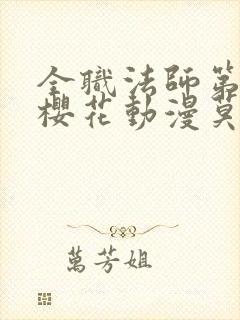 全職法師第
櫻花動漫莫
萬芳姐